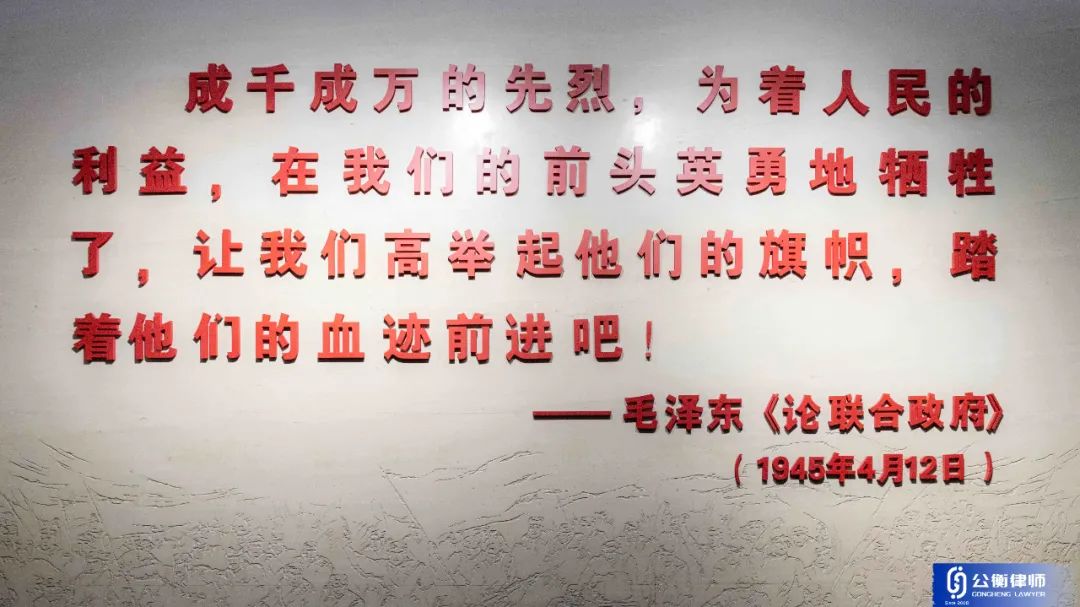 成千成万的先烈，为着人民的
利益，在我们的前头英勇地牺牲
了，让我们高举起他们的旗帜，踏
着他们的血迹前进吧！
——毛泽东《论联合政府》
（1945年4月12日）
公衡律师
GONGHENG LAWYER
Since 2020